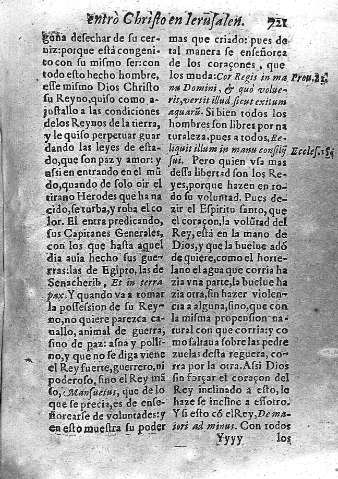 entrò Christo en Ierusalen.
721
gona desechar de su cer-
uiz: porque está congeni-
to con su mismo ser: con
todo esto hecho hombre,
esse mismo Dios Christo
su Reyno, quiso como a-
justallo a las condiciones
de los Reynos de la tierra,
y le quiso perpetuar guar
dando las leyes de esta-
do, que son paz y amor: y
assi en entrando en el mũ
do, quando de solo oir el
tirano Herodes que ha na
cido, se turba, y roba el co
lor. El entra predicando,
sus Capitanes Generales,
con los que hasta aquel
dia auia hecho sus guer-
ras: las de Egipto, las de
Senacherib, Et in terra
pax. Y quando va a tomar
la possession de su Rey-
no, no quiere parezca ca-
uallo, animal de guerra,
sino de paz: asna y polli-
no, y que no se diga viene
el Rey fuerte, guerrero, ni
poderoso, sino el Rey mã
so, Mansuetus, que de lo
que se precia, es de ense-
ñorearse de voluntades: y
en esto muestra su poder
mas que criado: pues de
tal manera se enseñorea
de los coraçones, que
los muda: Cor Regis in ma
nu Domini, & quò volue-
rit, vertit illud sicut exitum
aquarũ. Si bien todos los
hombres son libres por na
turaleza, pues a todos, Re-
liquit illum in manu consilij
sui. Pero quien vsa mas
dessa libertad son los Re-
yes, porque hazen en to-
do su voluntad. Pues de-
zir el Espiritu santo, que
el coraçon, la volũtad del
Rey, està en la mano de
Dios, y que la buelue adõ
de quiere, como el horte-
lano el agua que corria ha
zia vna parte, la buelue ha
zia otra, sin hazer violen-
cia a alguna, sino, que con
la misma propension na-
tural con que corria: y co
mo saltaua sobre las pedre
zuelas desta reguera, co-
rra por la otra. Assi Dios
sin forçar el coraçon del
Rey inclinado a esto, lo
haze se incline a essotro.
Y si esto cõ el Rey, De ma-
iori ad minus. Con todos
Yyyy
los
Ecclef. 15.